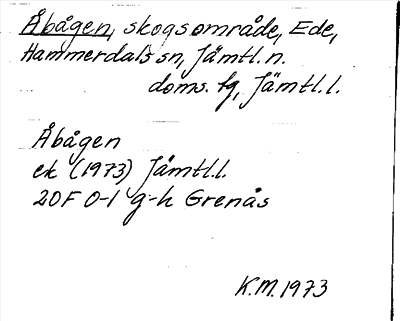 Åbågen, skogsområde, Ede,
Hammerdals sn, Jämtl. n.
doms. fg, Jämtl. l.
Åbågen
ek (1973) Jämtl. l.
20F 0-1 g-h Grenås
K.M. 1973